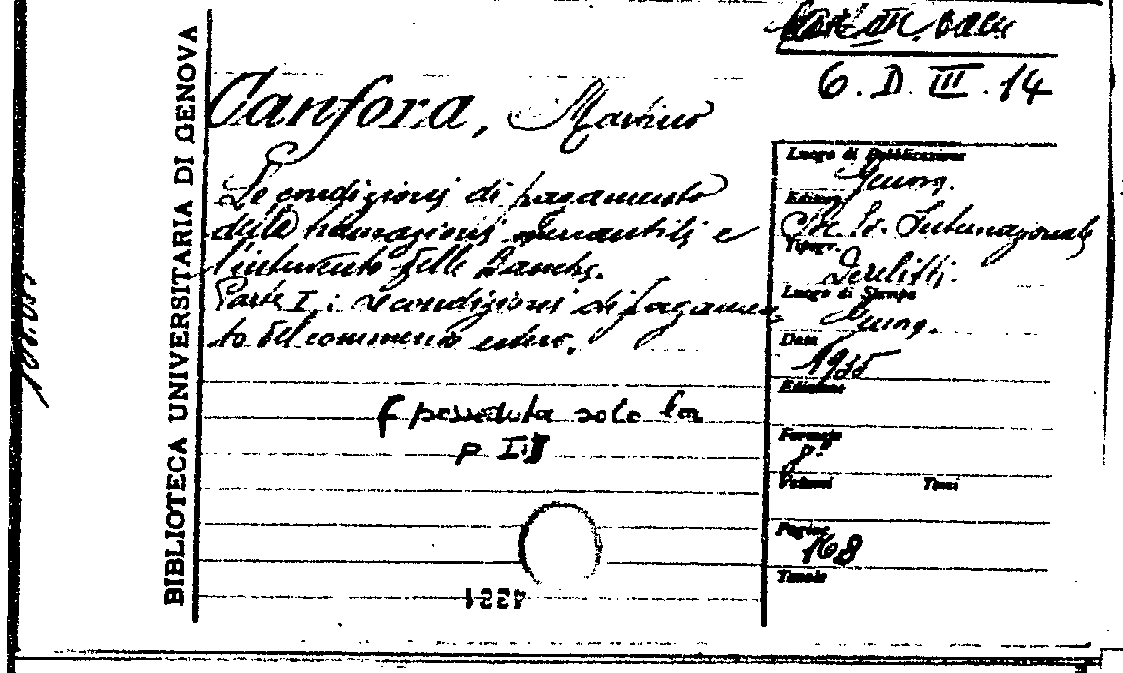 BIBLIOTECA UNIVERSITARIA DI GENOVA
6.D.III.14
Canfora, Marino
Le condizioni di pagamento
delle transazioni mercantili e
l'intervento delle Banche.
Parte I: Le condizioni di pagamen
to del commercio estero.
[posseduta solo la
p I]
Luogo di Pubblicazione
Genova.
Editore
Soc. Ed. Internazionale
Tipogr.
Derelitti.
Luogo di Stampa
Genova.
Data
1935
Edizione
Formato
8°
Volumi Tomi
Pagine
168
Tavole
1221